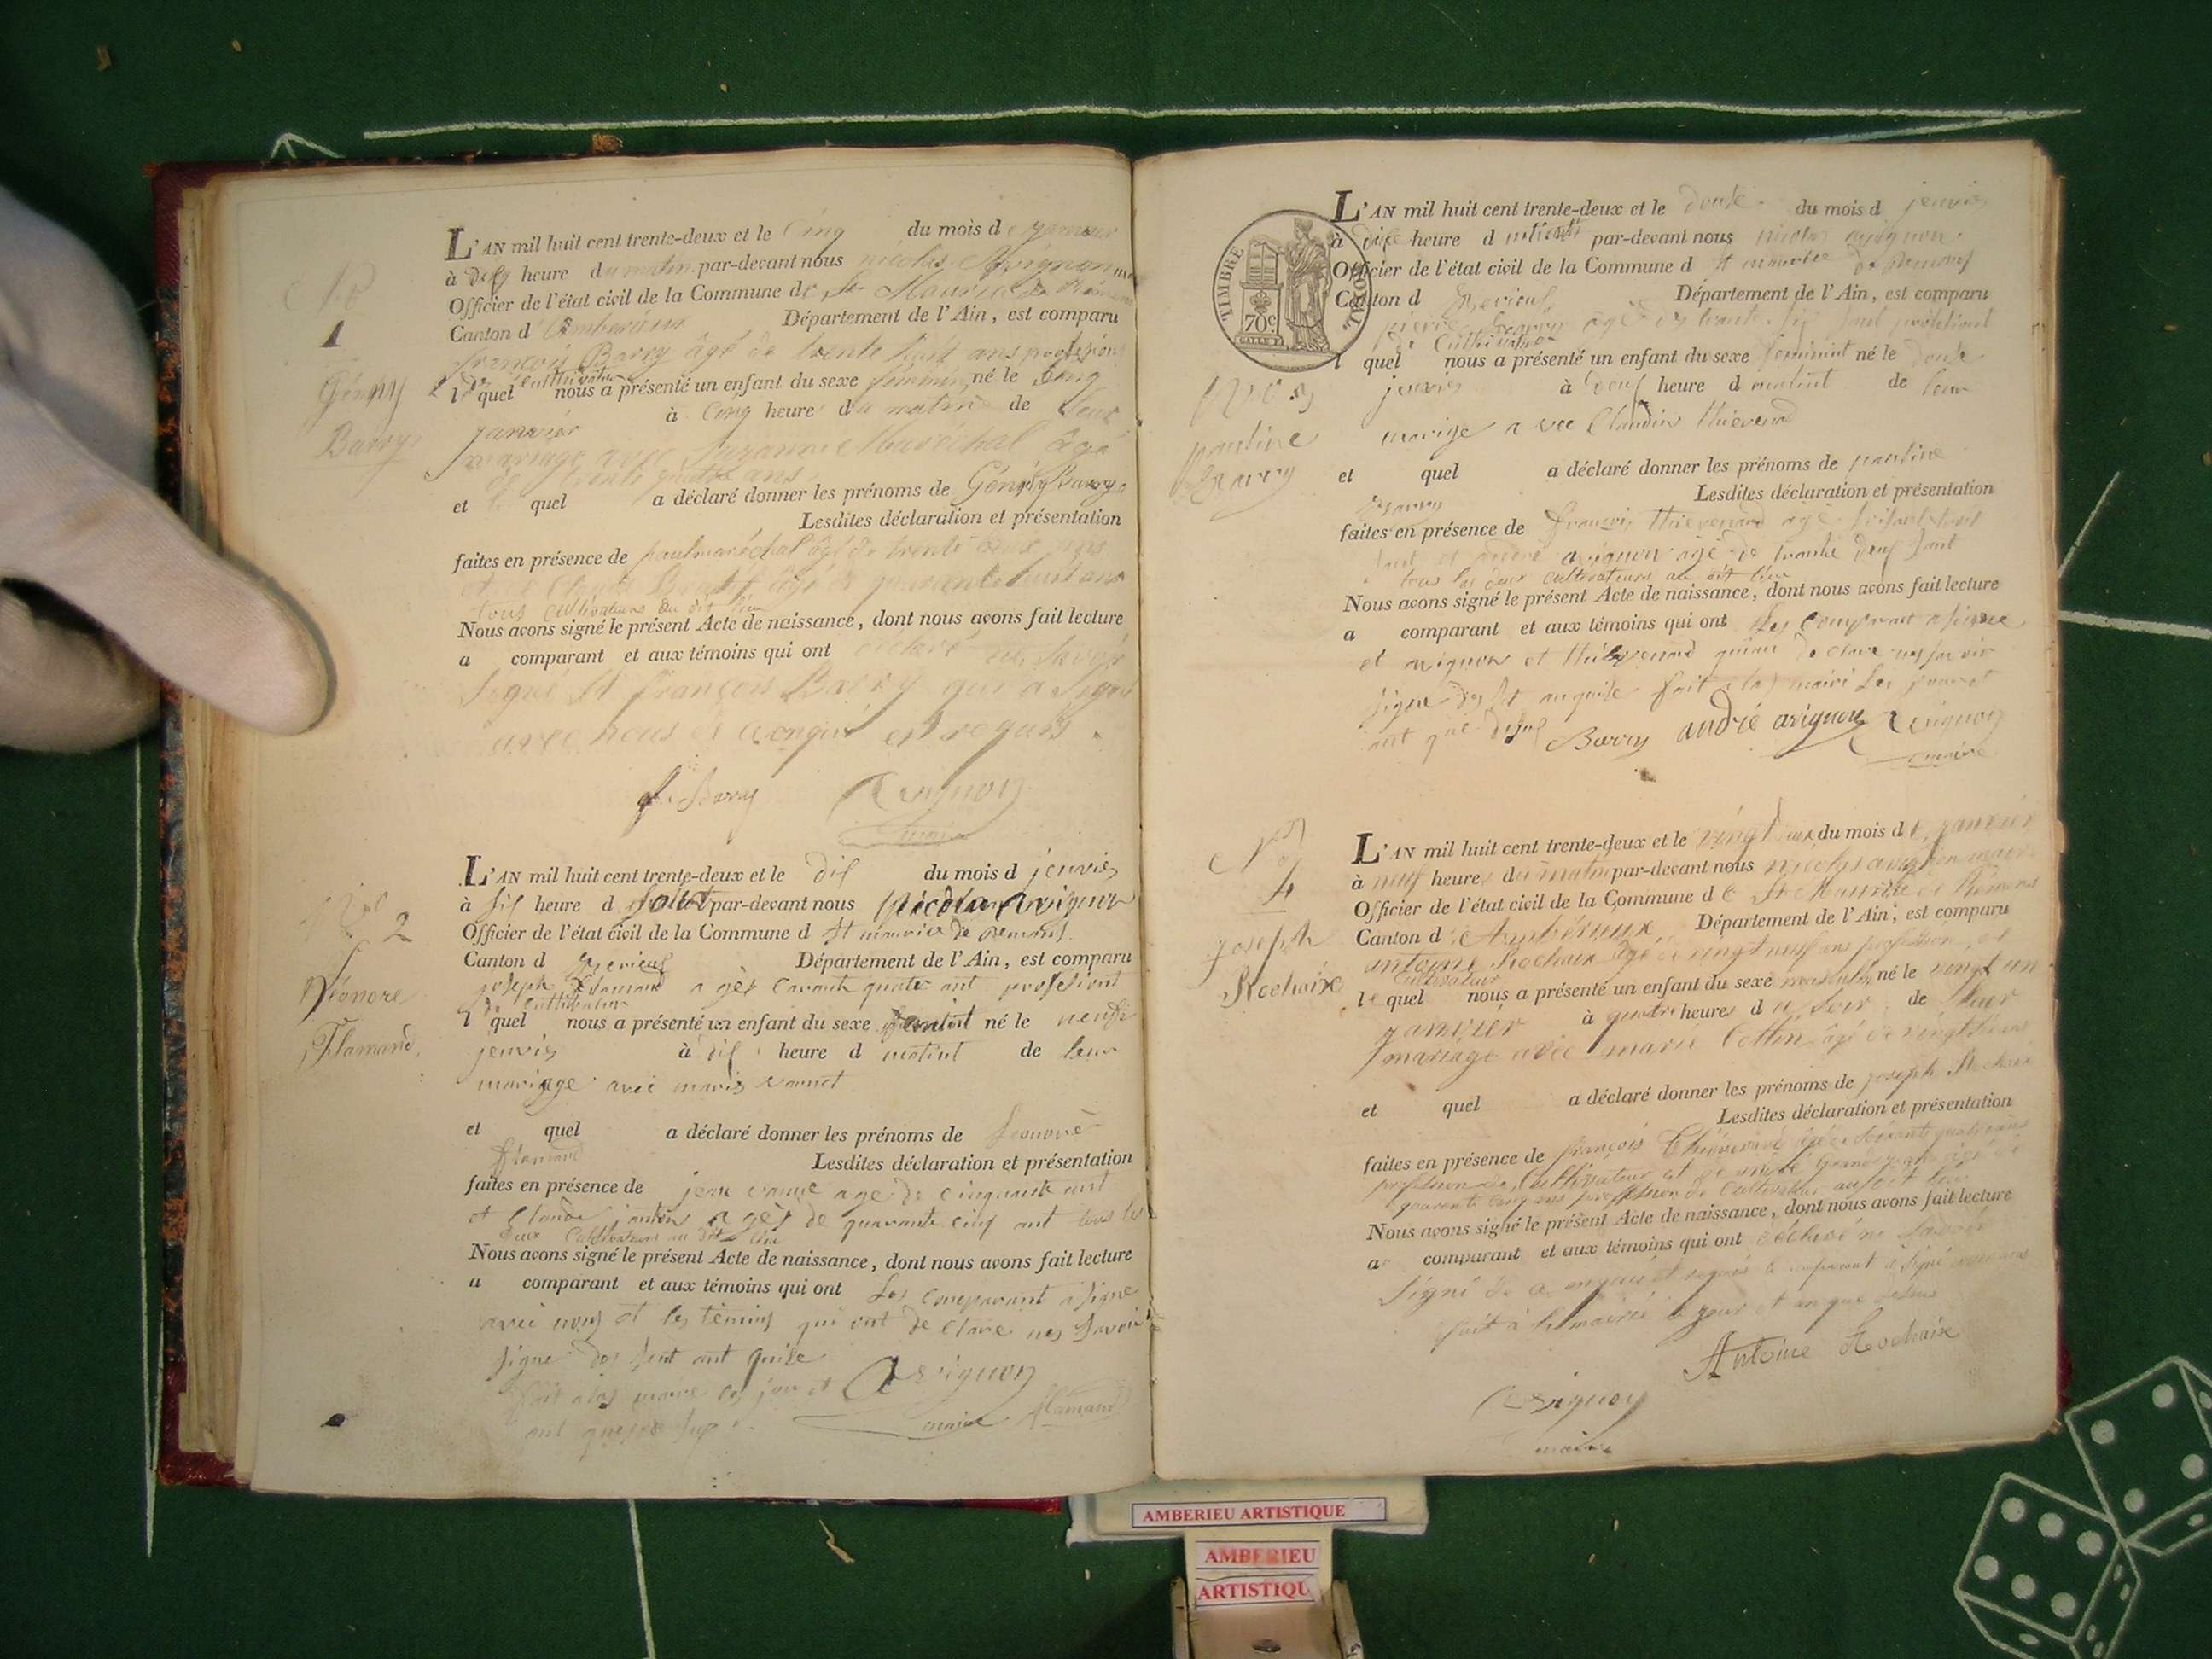 No
1
Génny
Barry
L'AN mil huit cent trente-deux et le Cinq du mois de janvier
à heure du matin par-devant nous nicolas Avignon
Officier de l'état civil de la Commune de St Maurice de Rémens
Canton d'Ambérieux Département de l'Ain, est comparu
françois Barry âgé de trente huit ans profession
de Cultivateur
lequel nous a présenté un enfant du sexe féminin né le Cinq
janvier à Cinq heure du matin de leur
mariage avec Suzanne Maréchal âgé
de trente quatre ans
et le quel a déclaré donner les prénoms de Génny Barry
Lesdites déclaration et présentation
faites en présence de paul maréchal âgé de trente ans
et Claude âgé de huit ans
tous cultivateurs du dit lieu
Nous avons signé le présent Acte de naissance, dont nous avons fait lecture
a comparant et aux témoins qui ont déclaré ne savoir
Signé St françois Barry qui a Signé
avec nous et requis
Barry Avignon
maire
2
Léonore
Flamand
L'AN mil huit cent trente-deux et le dix du mois d jenvier
à six heure d soir par-devant nous Nicolas Avignon
Officier de l'état civil de la Commune d St maurice de remens
Canton d Département de l'Ain, est comparu
joseph Flamand agés carante quatre ant profesiont
de Cultivateur
l quel nous a présenté un enfant du sexe né le
jenvier à dix heure d matint de leur
mariage avec marie vannet
et quel a déclaré donner les prénoms de Leonore
flamand
Lesdites déclaration et présentation
faites en présence de jean age de cinquante ant
et Claude agés de quarante cinq ant tous les
deux Cultivateurs au dit lieu
Nous avons signé le présent Acte de naissance, dont nous avons fait lecture
a comparant et aux témoins qui ont Les comparant a signe
avec nous et les temins qui ont de clare nes savoir
signe
fait a las marie les jour et Avignon
ant que maire flamand
TIMBRE ROYAL
70c
No 3
pauline
Barry
L'AN mil huit cent trente-deux et le douse du mois d jenvier
à heure d matint par-devant nous nicolas avignon
Officier de l'état civil de la Commune d St maurice de remens
Canton d Département de l'Ain, est comparu
pierre Barry agé de trante six ant profetiont
de Cultivateur
l quel nous a présenté un enfant du sexe feminint né le douse
jenvier à heure d matint de leur
marige avec Claudin thievenad
et quel a déclaré donner les prénoms de pauline
Barry
Lesdites déclaration et présentation
faites en présence de françois thievenard agé
ant et andré avignon agé de trante deux ant
tous les deux cultivateurs au dit lieu
Nous avons signé le présent Acte de naissance, dont nous avons fait lecture
a comparant et aux témoins qui ont Les Comparant a signe
et avignon et thievenard qui au de clare nes savoir
signe fait a las mairi les jour et
ant que desus Barry andré avignon Avignon
maire
No
4
joseph
Rochaix
L'AN mil huit cent trente-deux et le vingt deux du mois de janvier
à neuf heures du matin par-devant nous nicolas avignon maire
Officier de l'état civil de la Commune de St Maurice de Rémens
Canton d'Ambérieux Département de l'Ain, est comparu
antoine Rochaix âgé de vingt neuf ans profession de
Cultivateur
lequel nous a présenté un enfant du sexe masculin né le vingt un
janvier à quatre heures du Soir de leur
mariage avec marie Cottin âgé de vingt
et quel a déclaré donner les prénoms de joseph Rochaix
Lesdites déclaration et présentation
faites en présence de françois Thievenard âgé de soixante quatre ans
profession de Cultivateur et de âgé de
quarante cinq ans profession de Cultivateur au dit lieu
Nous avons signé le présent Acte de naissance, dont nous avons fait lecture
a comparant et aux témoins qui ont déclaré ne savoir
Signé de ce enquis et requis le comparant a Signé avec nous
fait à la mairie le jour et an que dessus
Antoine Rochaix
Avignon
maire
AMBERIEU ARTISTIQUE
AMBERIEU
ARTISTIQU